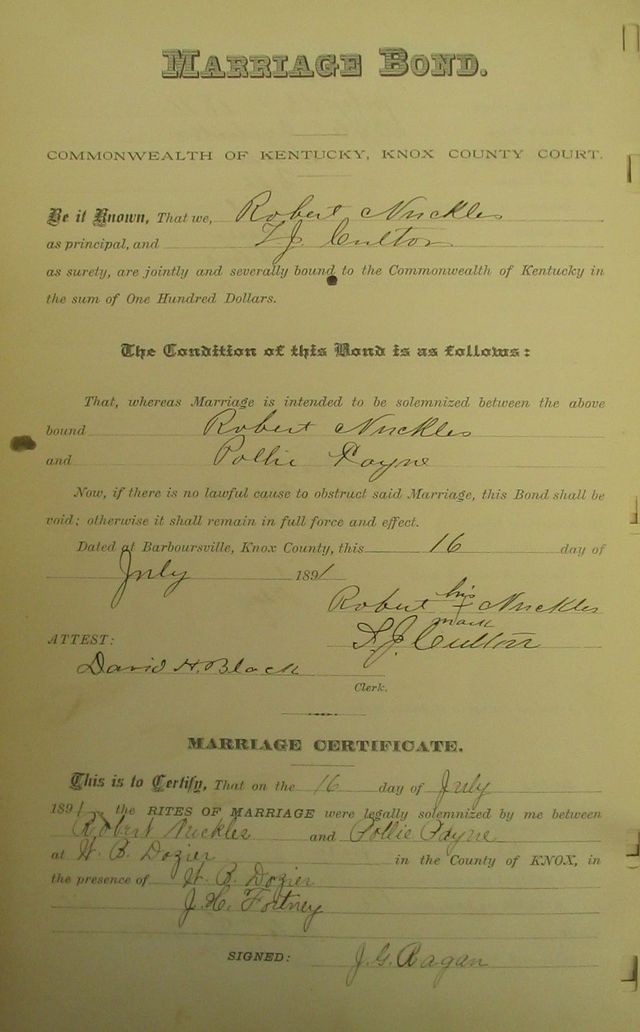 MARRIAGE BOND.
COMMONWEALTH OF KENTUCKY, KNOX COUNTY COURT.
Be it Known, That we, Robert Nuckles
as principal, and T J. Culton
as surety, are jointly and severally bound to the Commonwealth of Kentucky in
the sum of One Hundred Dollars.
The Condition of this Bond is as follows:
That, whereas Marriage is intended to be solemnized between the above
bound Robert Nuckles
and Pollie Payne
Now, if there is no lawful cause to obstruct said Marriage, this Bond shall be
void; otherwise it shall remain in full force and effect.
Dated at Barboursville, Knox County, this 16 day of
July 1891
his
Robert + Nuckles
mark
T. J. Culton
ATTEST:
David H. Black
Clerk.
MARRIAGE CERTIFICATE.
This is to Certify, That on the 16 day of July
1891, the RITES OF MARRIAGE were legally solemnized by me between
Robert Nuckles and Pollie Payne
at W. B. Dozier in the County of KNOX, in
the presence of W. B. Dozier
J. H. Fortney
SIGNED: J. G. Ragan